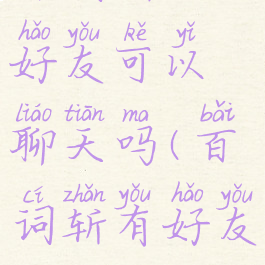 hǎo yǒu kě yǐ
好友可以
liáo tiān ma bǎi
聊天吗(百
cí zhǎn yǒu hǎo yǒu
词斩有好友